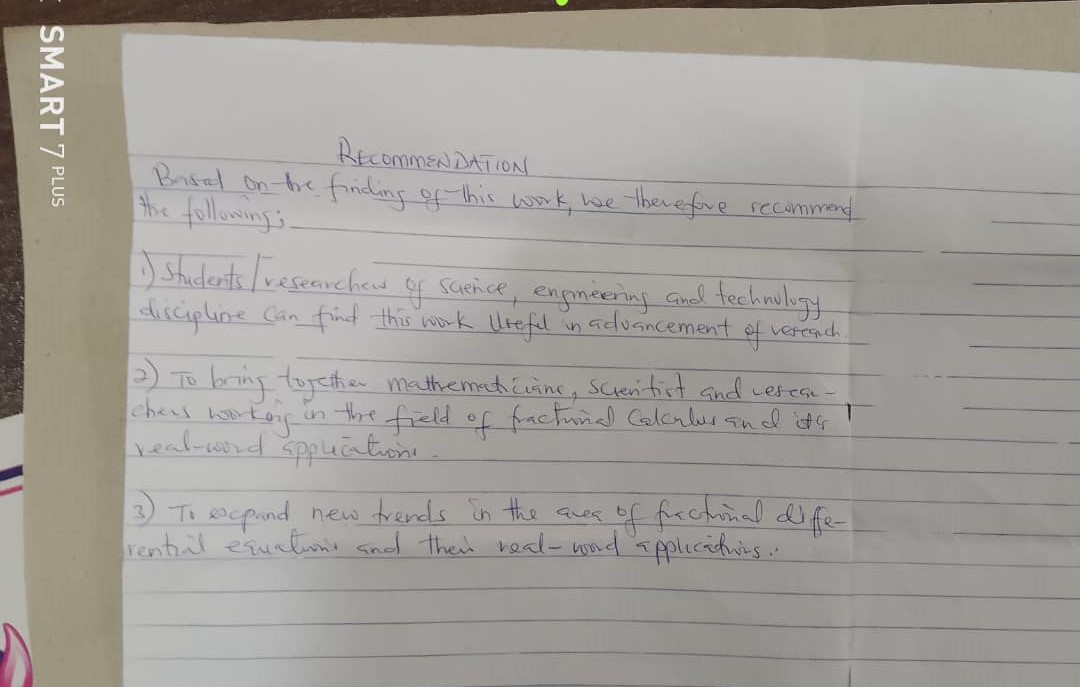 SMART 7 PLUS
RECOMMENDATION
Based on the finding of this work, we therefore recommend
the following;
1) Students/researchers of science, engineering and technology
discipline can find this work Useful in advancement of research.
2) To bring together mathematicians, scientist and resear-
chers working in the field of fractional Calculus and it's
real-word applications.
3) To expand new trends in the area of fractional diffe-
rential equations and their real-word applications.